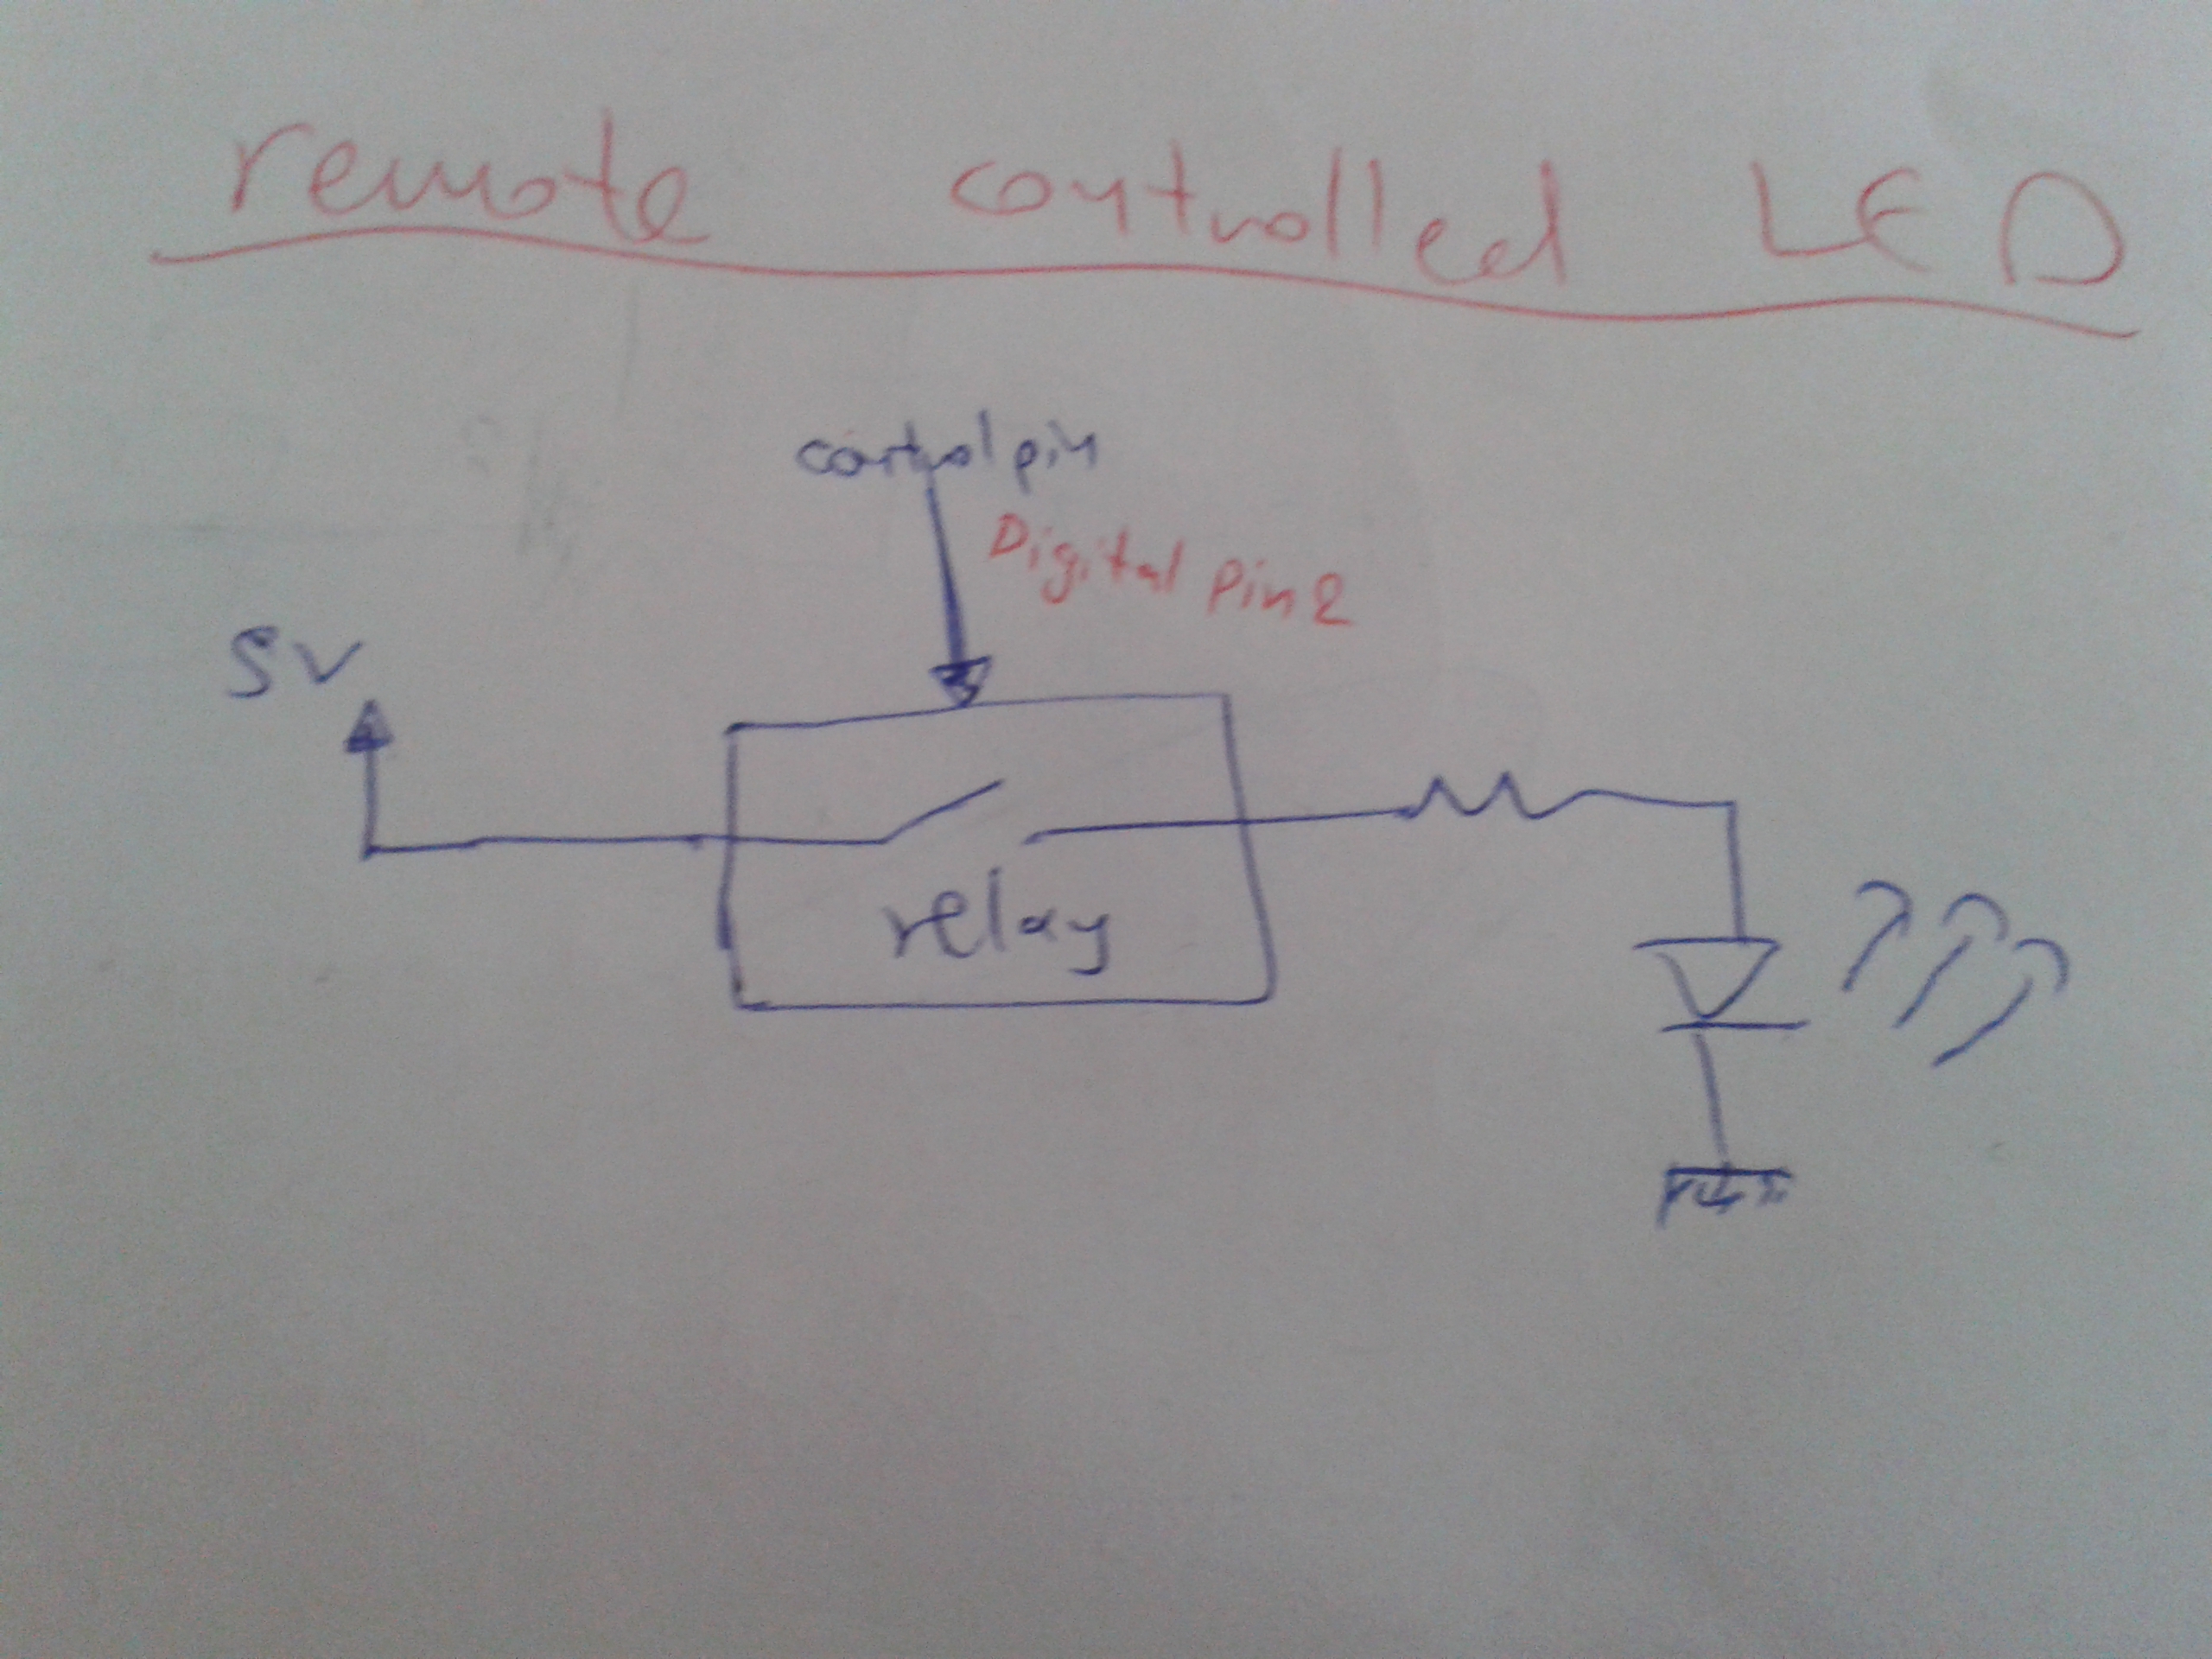 remote controlled LED
control pin
Digital Pin 2
5V
relay